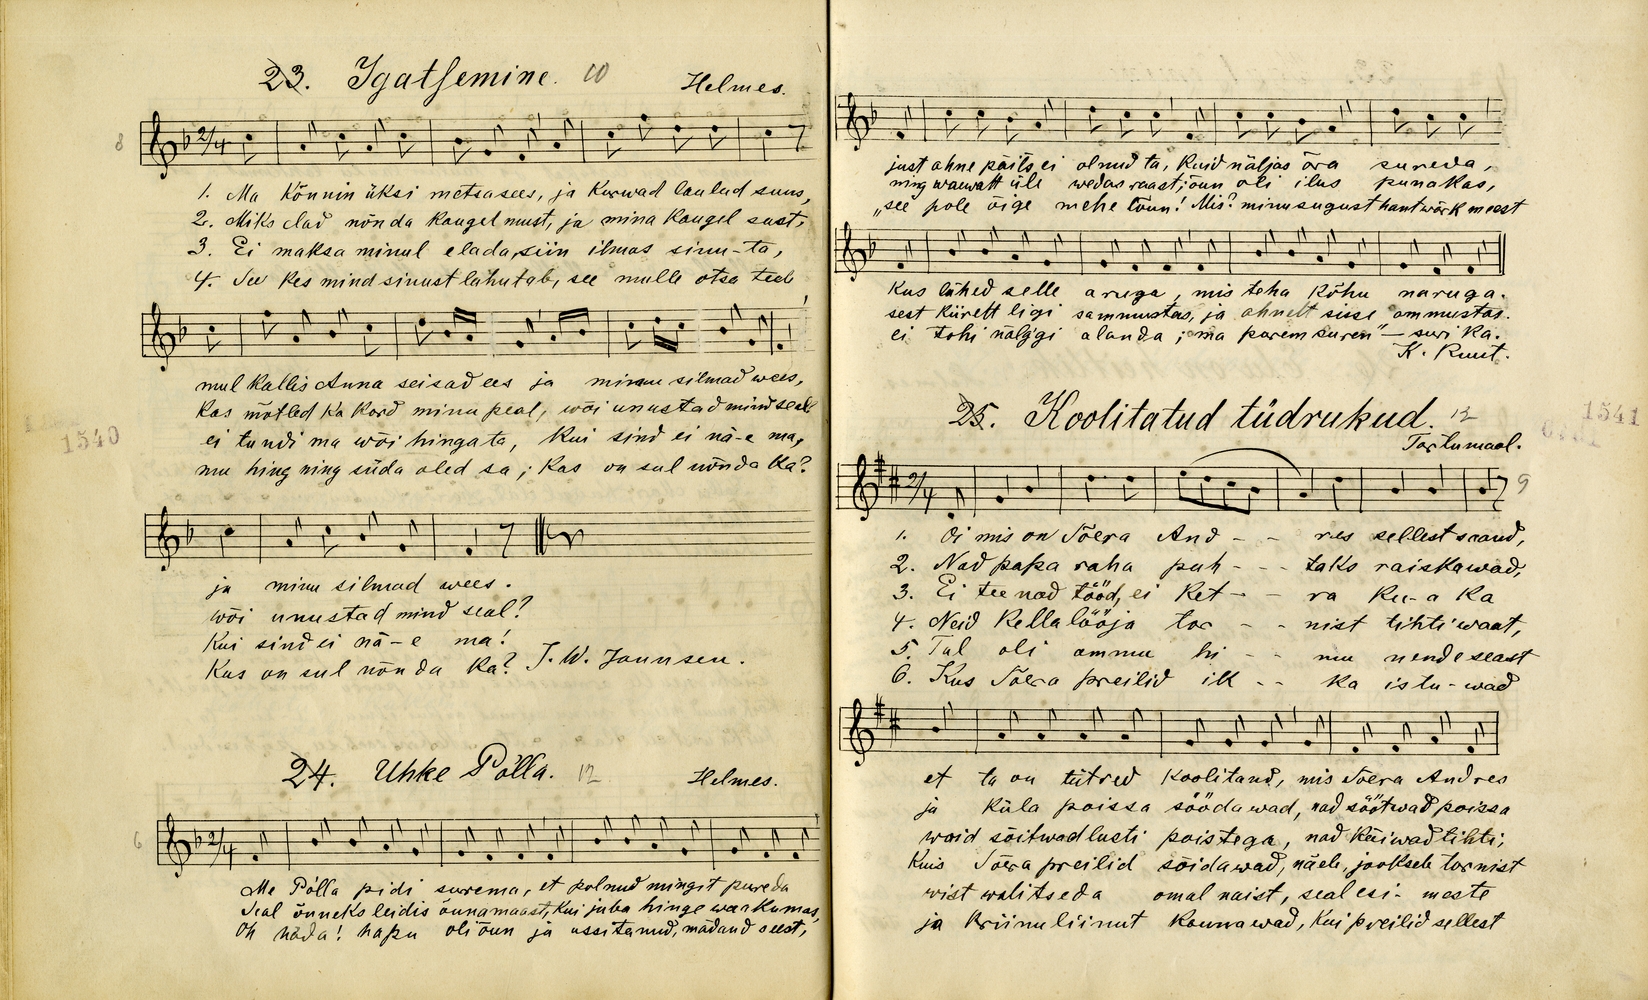 23. Igatsemine. 10
Helmes.
8
2/4
1. Ma kõnnin üksi metsasees, ja kurwad laulud suus,
2. Miks elad nõnda kaugel must, ja mina kaugel sust,
3. Ei maksa minul elada, siin ilmas sinu-ta,
4. See kes mind sinust lahutab, see mulle otsa teeb
mul kallis Anna seisad ees ja minu silmad wees,
kas mõtled ka kord minu peal, wõi unustad mind seal
ei tundi ma wõi hingata, kui sind ei nä-e ma,
mu hing ning süda oled sa; kas on sul nõnda ka?
1540
ja minu silmad wees.
wõi unustad mind seal?
kui sind ei nä-e ma!
kas on sul nõnda ka? J. W. Jannsen.
24. Uhke Pölla. 12
Helmes.
6
2/4
Me Pölla pidi surema, et polnud mingit pureda
Seal õnneks leidis õunamaast, kui juba hinge waakumas,
Oh häda! hapu oli õun ja ussitanud, mädand seest,
just ahne paits ei olnud ta, kuid näljas ära sureda,
ning waewalt üle wedas raast; õun oli ilus punakas,
„see pole õige mehe lõun! Mis? minusugust hantwärk meest
kus lähed selle aruga, mis teha kõhu naruga.
sest kiirelt ligi sammustas, ja ahnelt sisse ammustas.
ei tohi nälggi alanda; ma parem suren" — suri ka.
K. Ruut.
25. Koolitatud tüdrukud. 12
Tartumaal.
1541
2/4
9
1. Oi mis on Sõera And - - res sellest saand,
2. Nad papa raha puh - - - taks raiskawad,
3. Ei tee nad tööd, ei ket - - ra ku-a ka
4. Neid kellalööja tor - - nist tihti waat,
5. Tal oli ammu hi - - mu nende seast
6. Kus Sõera preilid ilk - - ka istu-wad
et ta on tütred koolitand, mis Sõera Andres
ja küla poissa söödawad, nad söötwad poissa
waid sõitwad lusti poistega, nad käiwad tihti;
kuis Sõera preilid sõidawad, näeb, jookseb tornist
wist walitseda omal naist, seal esi- meste
ja kriinuliinut kannawad, kui preilid sellest